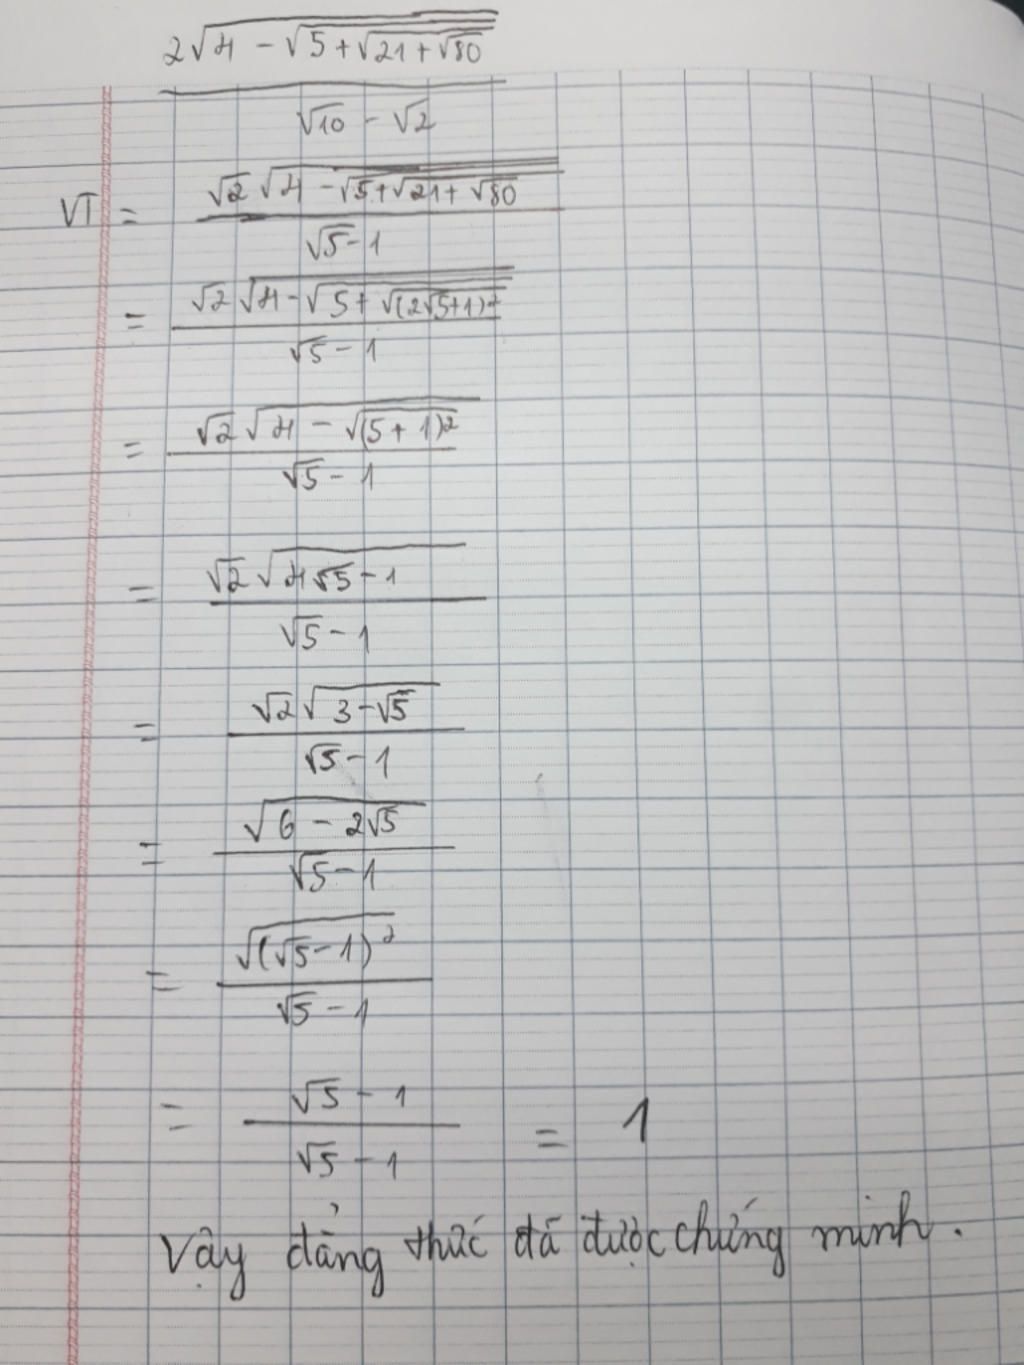 2√(4 - √(5 + √(21 + √80)))
√10 - √2
VT = √2 √(4 - √(5 + √(21 + √80)))
√5 - 1
= √2 √(4 - √(5 + √((2√5+1)²)))
√5 - 1
= √2 √(4 - √((5 + 1)²))
√5 - 1
= √2 √(4√5 - 1)
√5 - 1
= √2 √(3 - √5)
√5 - 1
= √(6 - 2√5)
√5 - 1
= √((√5 - 1)²)
√5 - 1
= √5 - 1 = 1
√5 - 1
Vậy đảng thức đã được chứng minh.